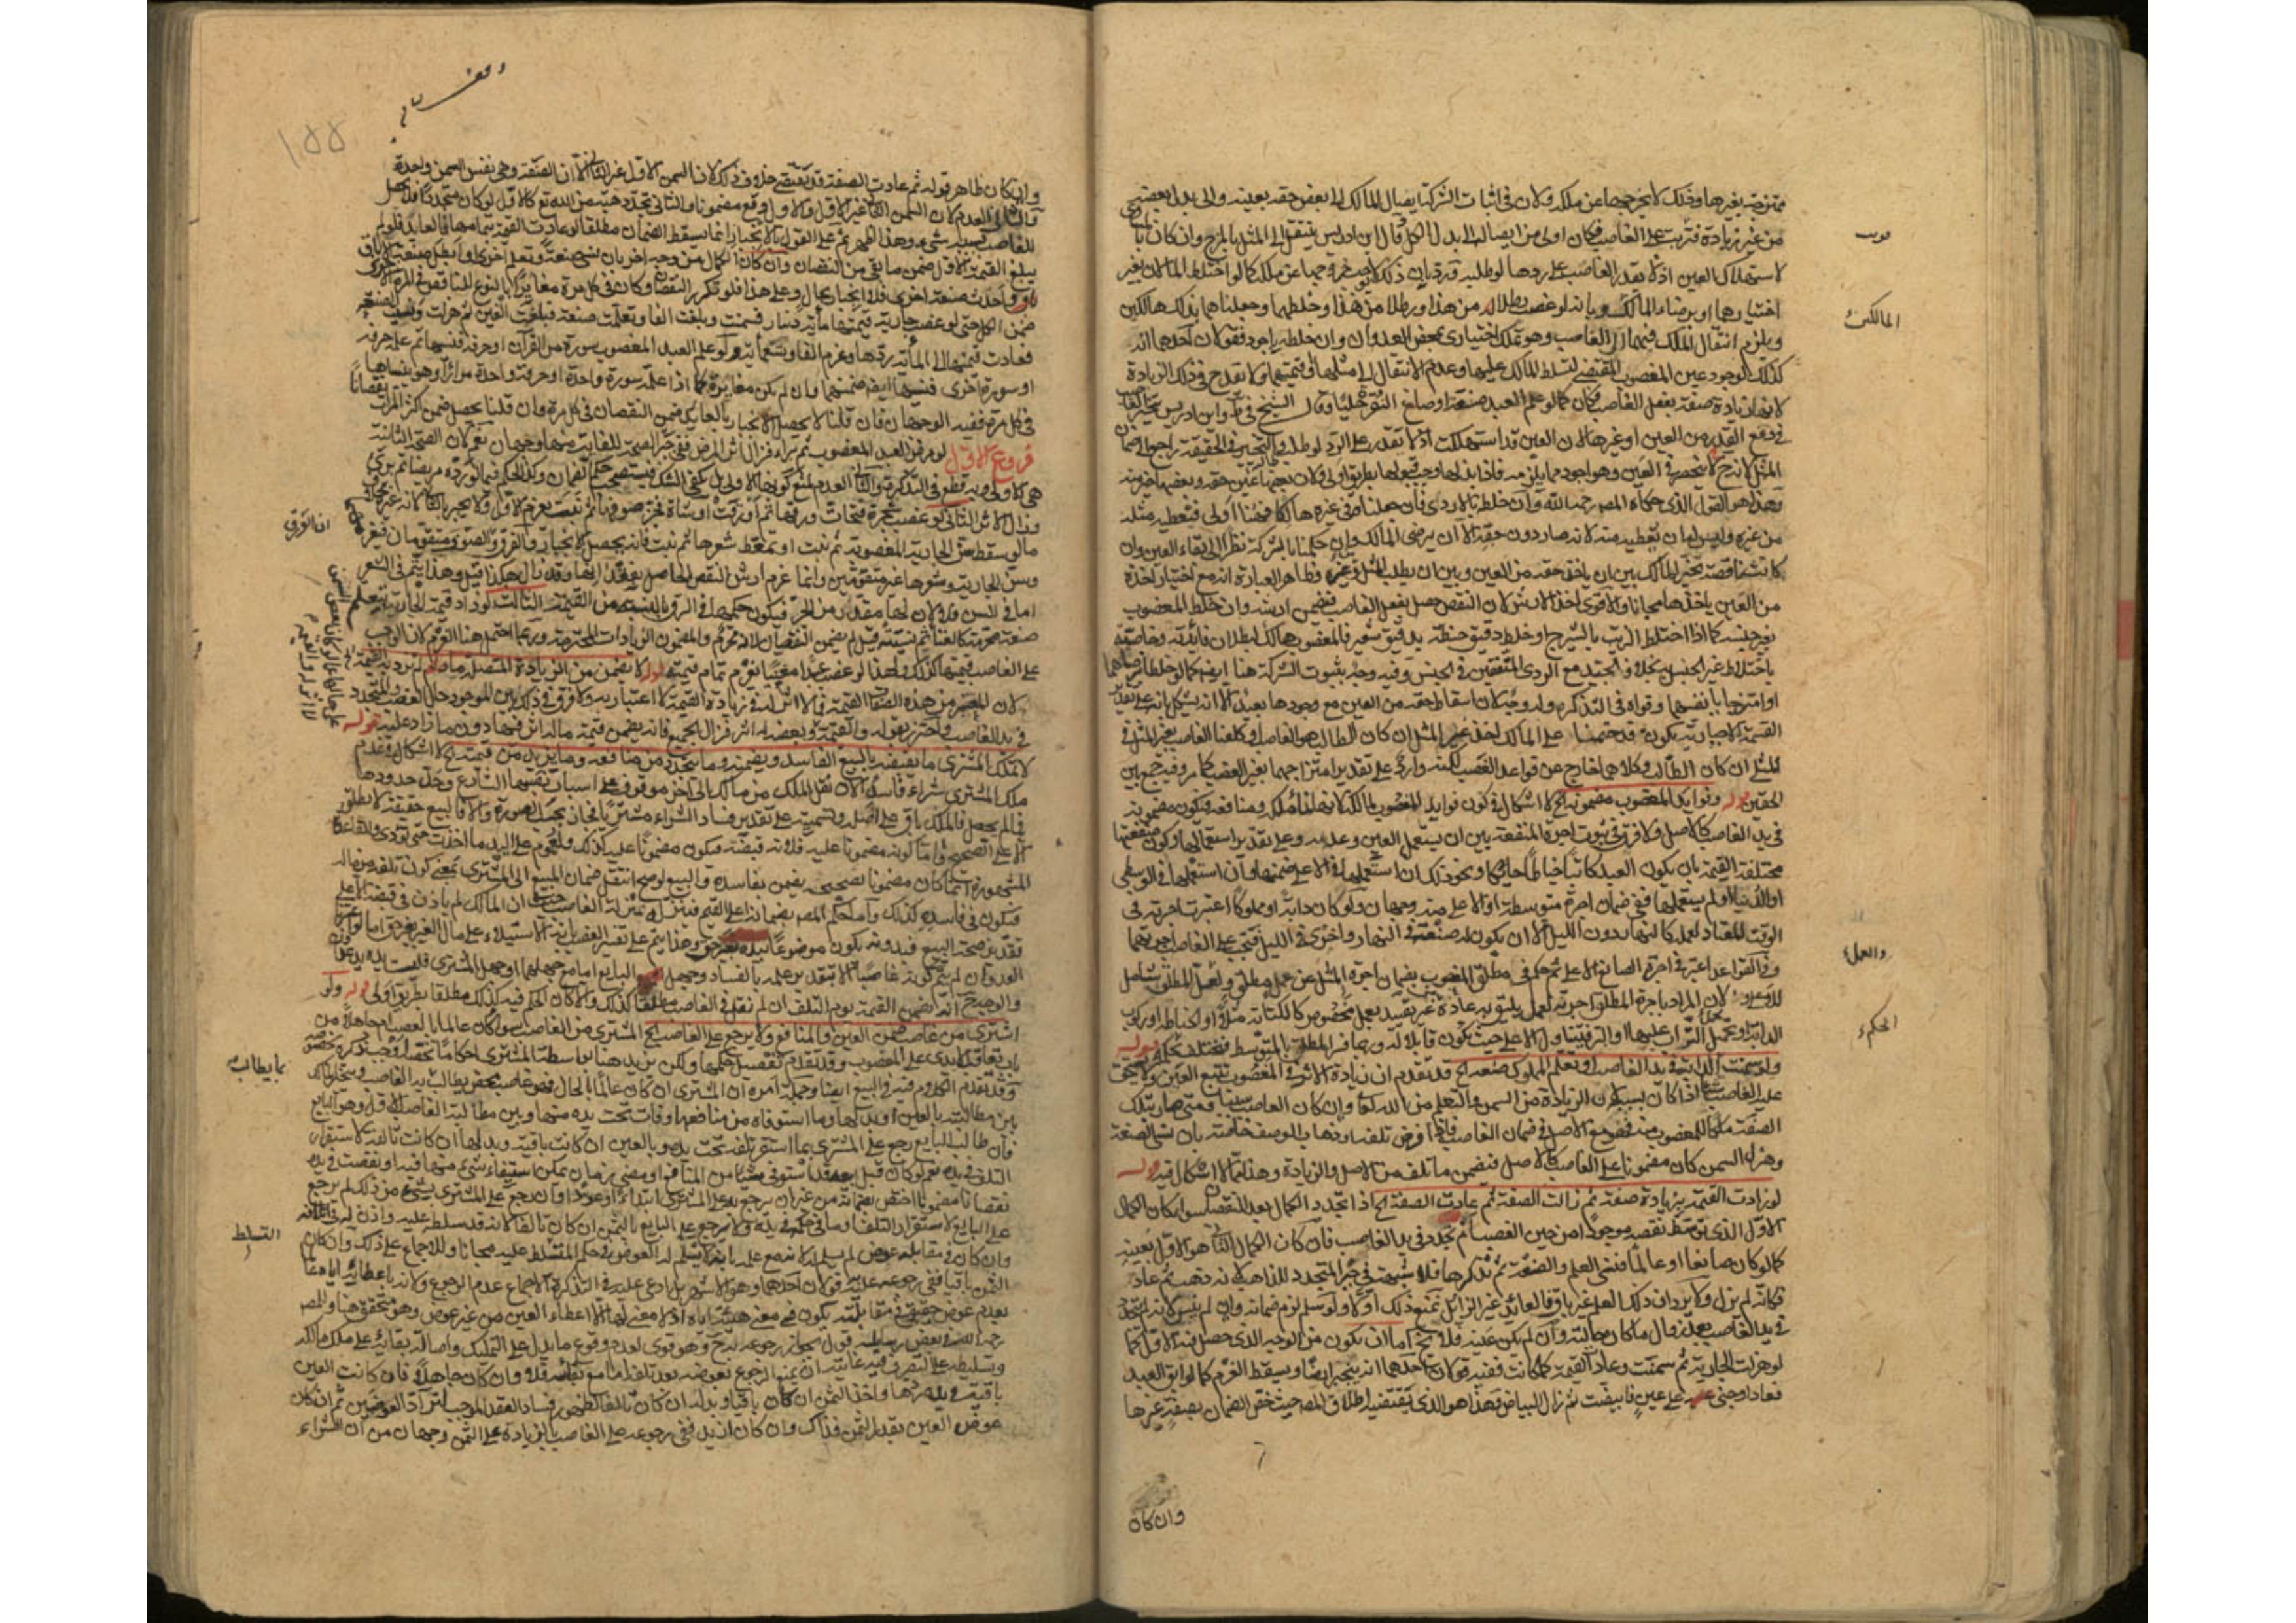 ممتزجة بغيرها وذلك لا يخرجها عن ملكه ولان في اثبات الشركة ايصال المالك الى بعض حقه بعينه والى بدل بعضه
من غير زيادة فترتب على الغاصب فكان اولى من ايصاله الى بدل الكل وقال ابن ادريس ينتقل الى المثل بالمزج وان كان
لاستهلاك العين اذ لا يقدر الغاصب على ردها لو طلبه ورد بان ذلك لا يوجب خروجها عن ملك كما لو اختلط المالان بغير
اختيارهما او برضاء المالكين وبانه لو غصب رطلا من هذا ورطلا من هذا وخلطهما وجعلناهما بذلك هالكين
ويلزم انتقال الملك فيهما الى الغاصب وهو تملك اختياري بمحض العدوان وان خلطه باجود فقولان احدهما انه
كذلك لوجود عين المغصوب المقتضي لتسلط المالك عليها وعدم الانتقال الى مثلها او قيمتها ولا يقدح في ذلك الزيادة
لانها زيادة صفة بفعل الغاصب فكان كما لو علم العبد صنعة او صاغ النقرة حليا وقال الشيخ في ط وابن ادريس يتخير الغاصب
في دفع القدر من العين او غيرها لان العين قد استهلكت اذ لا يقدر على الرد لو طلبه والتخيير في الحقيقة راجع الى ضمان
المثل لانه ح لا ينحصر في العين وهو اجود مما يلزمه فاذا بذلها وجب قبولها بطريق اولى ولان بعضها عين حقه وبعضها خير منه
وهذا هو القول الذي حكاه المص رحمه الله وان خلطه بالاردى
من غيره وليس له ان يعطيه منه لانه صار دون حقه الا ان يرضى المالك وان حكمنا بالشركة نظرا الى بقاء العين وان
كانت ناقصة تخير المالك بين ان ياخذ حقه من العين وبين ان يطلب المثل من غيره وظاهر العبارة انه مع اختيار اخذه
من العين ياخذها مجانا والاقوى اخذ الارش لان النقص حصل بفعل الغاصب فيضمن ارشه وان خلط المغصوب
بغير جنسه كما اذا اختلط الزيت بالشيرج او خلط دقيق حنطة بدقيق شعير فالمغصوب هالك لبطلان فائدته وخاصيته
باختلاط غير الجنس بخلاف الجيد مع الردى المتفقين في الجنس وفيه وجه بثبوت الشركة هنا ايضا كما لو خلطا برضاهما
او امتزجا بانفسهما وقواه في التذكرة وله وجه لان اسقاط حقه من العين مع وجودها بعيد الا انه يشكل بانه على تقدير
القسمة الاجبارية يكون قد حتمنا على المالك اخذ غير المثل ان كان الطالب هو الغاصب او كلفنا الغاصب بغير المثل في
المثلي ان كان الطالب وكلاهما خارج عن قواعد الغصب لكنه وارد على تقدير امتزاجهما بغير الغصب كما مر وفيه جمع بين
الحقين قوله وفوايد المغصوب مضمونة الخ لا اشكال في كون فوايد المغصوب للمالك لانها نماء ملكه ومنافعه فيكون مضمونة
في يد الغاصب كالاصل ولا فرق في ثبوت اجرة المنفعة بين ان يستعمل العين وعدمه وعلى تقدير استعمالها وكون منفعتها
مختلفة القيمة بان يكون العبد كاتبا خياطا حائكا ونحو ذلك ان استعملها في الاعلى ضمنها وان استعملها في الوسطى
او الدنيا او لم يستعملها ففي ضمان اجرة متوسطة او الاعلى منه وجهان ولو كان دابة او مملوكا اعتبرت اجرته في
الوقت المعتاد لعمله كالنهار دون الليل الا ان يكون له صنعة في النهار واخرى في الليل فتجب على الغاصب اجرتهما
وفي القواعد اعتبر في اجرة الصانع الاعلى ثم حكم في مطلق المغصوب بضمان اجرة المثل عن عمل مطلق ولعل المطلق شامل
للاعلى لان المراد باجرة المطلق اجرته لعمل يليق به عادة غير مقيد بعمل مخصوص كالكتابة مثلا او الخياطة او ركوب
الدابة او تحميل التراب عليها او البر فيتناول الاعلى حيث يكون قابلا له وربما فسر المطلق بالمتوسط فيختلف الحكم قوله
ولو سمنت الدابة في يد الغاصب او تعلم المملوك صنعة الخ قد تقدم ان زيادة الاثر في المغصوب تتبع العين ولا يستحق
عليه الغاصب شيئا اذا كان بسببه لان الزيادة من السمن والتعلم من الله تعالى وان كان الغاصب سببا ومتى صارت تلك
الصفة ملكا للمغصوب منه فهي مع الاصل في ضمان الغاصب فاذا فرض تلفه او ذهاب الوصف خاصة بان نسى الصنعة
وهزل السمن كان مضمونا على الغاصب كالاصل فيضمن ما تلف من الاصل والزيادة وهذا مما لا اشكال فيه قوله
لو زادت القيمة بزيادة صفة ثم زالت الصفة ثم عادت الصفة الخ اذا تجدد الكمال بعد النقصان سواء كان الكمال
الاول الذي حصل نقصه موجودا من حين الغصب ام تجدد في يد الغاصب فان كان الكمال الثاني هو الاول بعينه
كما لو كان صانعا او عالما فنسى العلم والصنعة ثم تذكرها فلا شبهة في جبر المتجدد للذاهب لانه ذهب ثم عاد
فكانه لم يزل ولا يرد ان ذلك العلم غير باق فالعائد غير الزائل لمنع ذلك اولا ولو سلم لزم ضمانه وان لم ينس لانه يتجدد
في يد الغاصب بعد زوال ما كان حالته وان لم يكن عينه فلا يخ اما ان يكون من الوجه الذي حصل فيه الاول كما
لو هزلت الجارية ثم سمنت وعادت القيمة كما كانت ففيه قولان احدهما انه ينجبر ايضا ويسقط الغرم كما لو ابق العبد
فعاد او جنى على عين فابيضت ثم زال البياض وهذا هو الذي يقتضيه اطلاق المص حيث خص الضمان بصفة غيرها
وان كان
فوت
المالكين
والعمل
الحكم
وقف
١٥٥
وان كان ظاهر قوله ثم عادت الصفة قد يقتضي خلاف ذلك لان السمن الاول غير الثاني الا ان الصفة وهي نفس السمن واحدة
والثاني العدم لان السمن الثاني غير الاول والاول وقع مضمونا والثاني تجدد هبة من الله تع كالاول لو كان متجددا فلا يحصل
للغاصب بسببه شيء وهذا اظهر ثم على القول بالانجبار انما يسقط الضمان مطلقا لو عادت القيمة بتمامها فالعايد فلو لم
يبلغ القيمة الاولى ضمن ما بقي من النقصان وان كان الكمال من وجه اخر بان نسى صنعة وتعلم اخرى او ابطل صنعة
واحدث صنعة اخرى فلا انجبار بحال وعلى هذا فلو تكرر النقص وكان في كل مرة مغايرا بالنوع للناقص في المرة الاخرى
ضمن الكل حتى لو غصب جارية قيمتها مأية دينار فسمنت وبلغت الفا وتعلمت صنعة فبلغت الفين ثم هزلت ونسيت الصنعة
فعادت قيمتها الى المأية ردها وغرم الفا وتسعمأية ولو علم العبد المغصوب سورة من القرآن او حرفة فنسيها ثم علم حرفة
او سورة اخرى فنسيها ايضا ضمنهما وان لم يكن مغايرة كما اذا علمه سورة واحدة او حرفة واحدة مرارا وهو ينساها
في كل مرة ففيه الوجهان فان قلنا لا يحصل الانجبار بالعايد ضمن النقصان في كل مرة وان قلنا يحصل ضمن اكثر المرات نقصانا
فروع الاول لو مرض العبد المغصوب ثم براء فزال اثر المرض ففي جبر الصحة للفائت منها وجهان نعم لان الصحة الثانية
هي الاولى وبه قطع في التذكرة والثاني العدم لمنع كونها الاولى بل يكفي الشك فيستصحب حكم الضمان وكذا الحكم فيما لو رده مريضا ثم برئ
وزال الاثر الثاني لو غصب شجرة فتحات ورقها ثم اورقت او شاة فجز صوفها ثم نبت يغرم الاول ولا يجبر بالثاني لانه غيره بخلاف
ما لو سقط سن الجارية المغصوبة ثم نبت او تمعط شعرها ثم نبت فانه يحصل الانجبار والفرق ان الورق والصوف متقومان فيغرمهما
وسن الجارية وشعرها غير متقومين وانما غرم ارش النقص الحاصل بفقدانها وقد زال هكذا قيل وهذا يتم في الشعر
اما في السن فلا لان لها مقدرا من الحر فيكون حكمها في الرق بالنسبة من القيمة الثالث لو زاد قيمة الجارية بتعلم
صنعة محرمة كالغناء ثم نسيته قيل لم يضمن النقصان لانه محرم والمضمون الزيادات المحترمة وربما احتمل هنا الغرم لان الواجب
على الغاصب قيمتها كذلك ولهذا لو غصب عبدا مغنيا يغرم تمام قيمته قوله ولا يضمن من الزيادة المتصلة ما لم تزد به القيمة
لان المعتبر من هذه الصفات القيمة فما لا اثر له في زيادة القيمة لا اعتبار به ولا فرق في ذلك بين الموجود حال الغصب والمتجدد
في يد الغاصب واحترز بقوله والقيمة وبعضه له اثر فزال الجميع فانه يضمن قيمة ماله اثر فيها دون ما زاد عليه قوله
لا يملك المشتري ما يقبضه بالبيع الفاسد ويضمنه وما يتجدد من منافعه وما يزيد من قيمته الخ لا اشكال في عدم
ملك المشتري شراء فاسدا لان نقل الملك من مالك الى آخر موقوف على اسباب نصبها الشارع وحدّ حدودها
فما لم يحصل فالملك باق على اصله وتسميته على تقدير فساد الشراء مشتريا مجاز بحسب الصورة والا فالبيع حقيقة لا يطلق
الا على الصحيح واما كونه مضمونا عليه فلانه قبضه فيكون مضمونا عليه كذلك ولعموم على اليد ما اخذت حتى تؤدي وللقاعدة
المشهورة ان كلما كان مضمونا بصحيحه يضمن بفاسده والبيع لو صح انتقل ضمان المبيع الى المشتري بمعنى كون تلفه من ماله
فيكون في فاسده كذلك واما حكم المص بضمان اعلى القيم فتنزيله منزلة الغاصب حيث ان المالك لم ياذن في قبضه الا على
تقدير صحة البيع فبدونه يكون موضوعا بيده بغير حق وهذا يتم على تفسير الغصب بانه الاستيلاء على مال الغير بغير حق اما
العدوان لم يتم كونه غاصبا الا بتقدير علمه بالفساد وجهل البايع اما مع جهلهما او جهل المشتري فليست يده يد عدوان
والوجه ح انه يضمن القيمة يوم التلف ان لم نقل في الغاصب مطلقا كذلك والا كان الحكم فيه كذلك مطلقا بطريق اولى قوله ولو
اشترى من غاصب ضمن العين والمنافع ولا يرجع على الغاصب الخ المشتري من الغاصب سواء كان عالما بالغصب ام جاهلا من
باب تعاقب الايدي على المغصوب وقد تقدم تفصيل حكمها ولكن يزيد هنا بواسطة المشتري احكاما
وقد تقدم الكلام فيه في البيع ايضا وجملة امره ان المشتري ان كان عالما بالحال فهو غاصب محض يطالب به الغاصب ويتخير المالك
بين مطالبته بالعين او بدلها وما استوفاه من منافعها وفات تحت يده منها وبين مطالبة الغاصب الاول وهو البايع
فان طالب البايع رجع على المشتري بما استقر تلفه تحت يده وبالعين ان كانت باقية وبدلها ان كانت تالفة لاستقرار
التلف في يده نعم لو كان قبل بيعه قد استوفى شيئا من المنافع او مضى زمان يمكن استيفاء شيء منها فيه او نقصت في يده
نقصانا مضمونا اختص بضمانه من غير ان يرجع به على المشتري ابتداء او عودا وان رجع على المشتري بشيء من ذلك لم يرجع
على البايع لاستقرار التلف او ما في حكمه في يده ولا يرجع على البايع بالثمن ان كان تالفا لانه قد سلطه عليه واذن له في اتلافه
وان كان في مقابله عوض لم يسلم له لانه مع علمه بانه لا يسلم له العوض في حكم المتسلط عليه مجانا وللاجماع على ذلك وان كان
الثمن باقيا ففي رجوعه عليه قولان احدهما وهو الاشهر بل ادعى عليه في التذكرة الاجماع عدم الرجوع ولانه باعطائه اياه عالما
بعدم عوض حقيقي في مقابلته يكون في معنى هبته اياه اذ لا معنى لها الا اعطاء العين من غير عوض وهو متحقق هنا وللمص
رحمه الله في بعض رسائله قول بجواز رجوعه به ح وهو قوي لعدم وقوع ما يدل على التمليك واصالة بقائه على ملك مالكه
وتسليطه على التصرف فيه غايته ان يمنع الرجوع بعوضه بعد تلفه اما مع بقائه فلا وان كان جاهلا فان كانت العين
باقية في يده ردها واخذ الثمن ان كان باقيا وبدله ان كان تالفا لظهور فساد العقد الموجب لتراد العوضين ثم ان كان
عوض العين بقدر الثمن فذاك وان كان ازيد ففي رجوعه على الغاصب بالزيادة على الثمن وجهان من ان الشراء
بما يطالب
التسلط